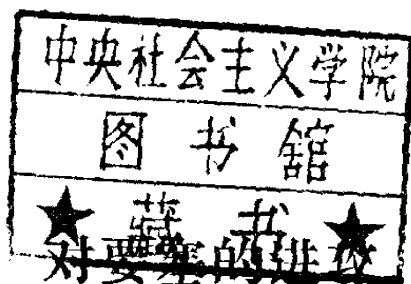 中央社会主义学院
图书舘
★藏书★
对要塞的进攻